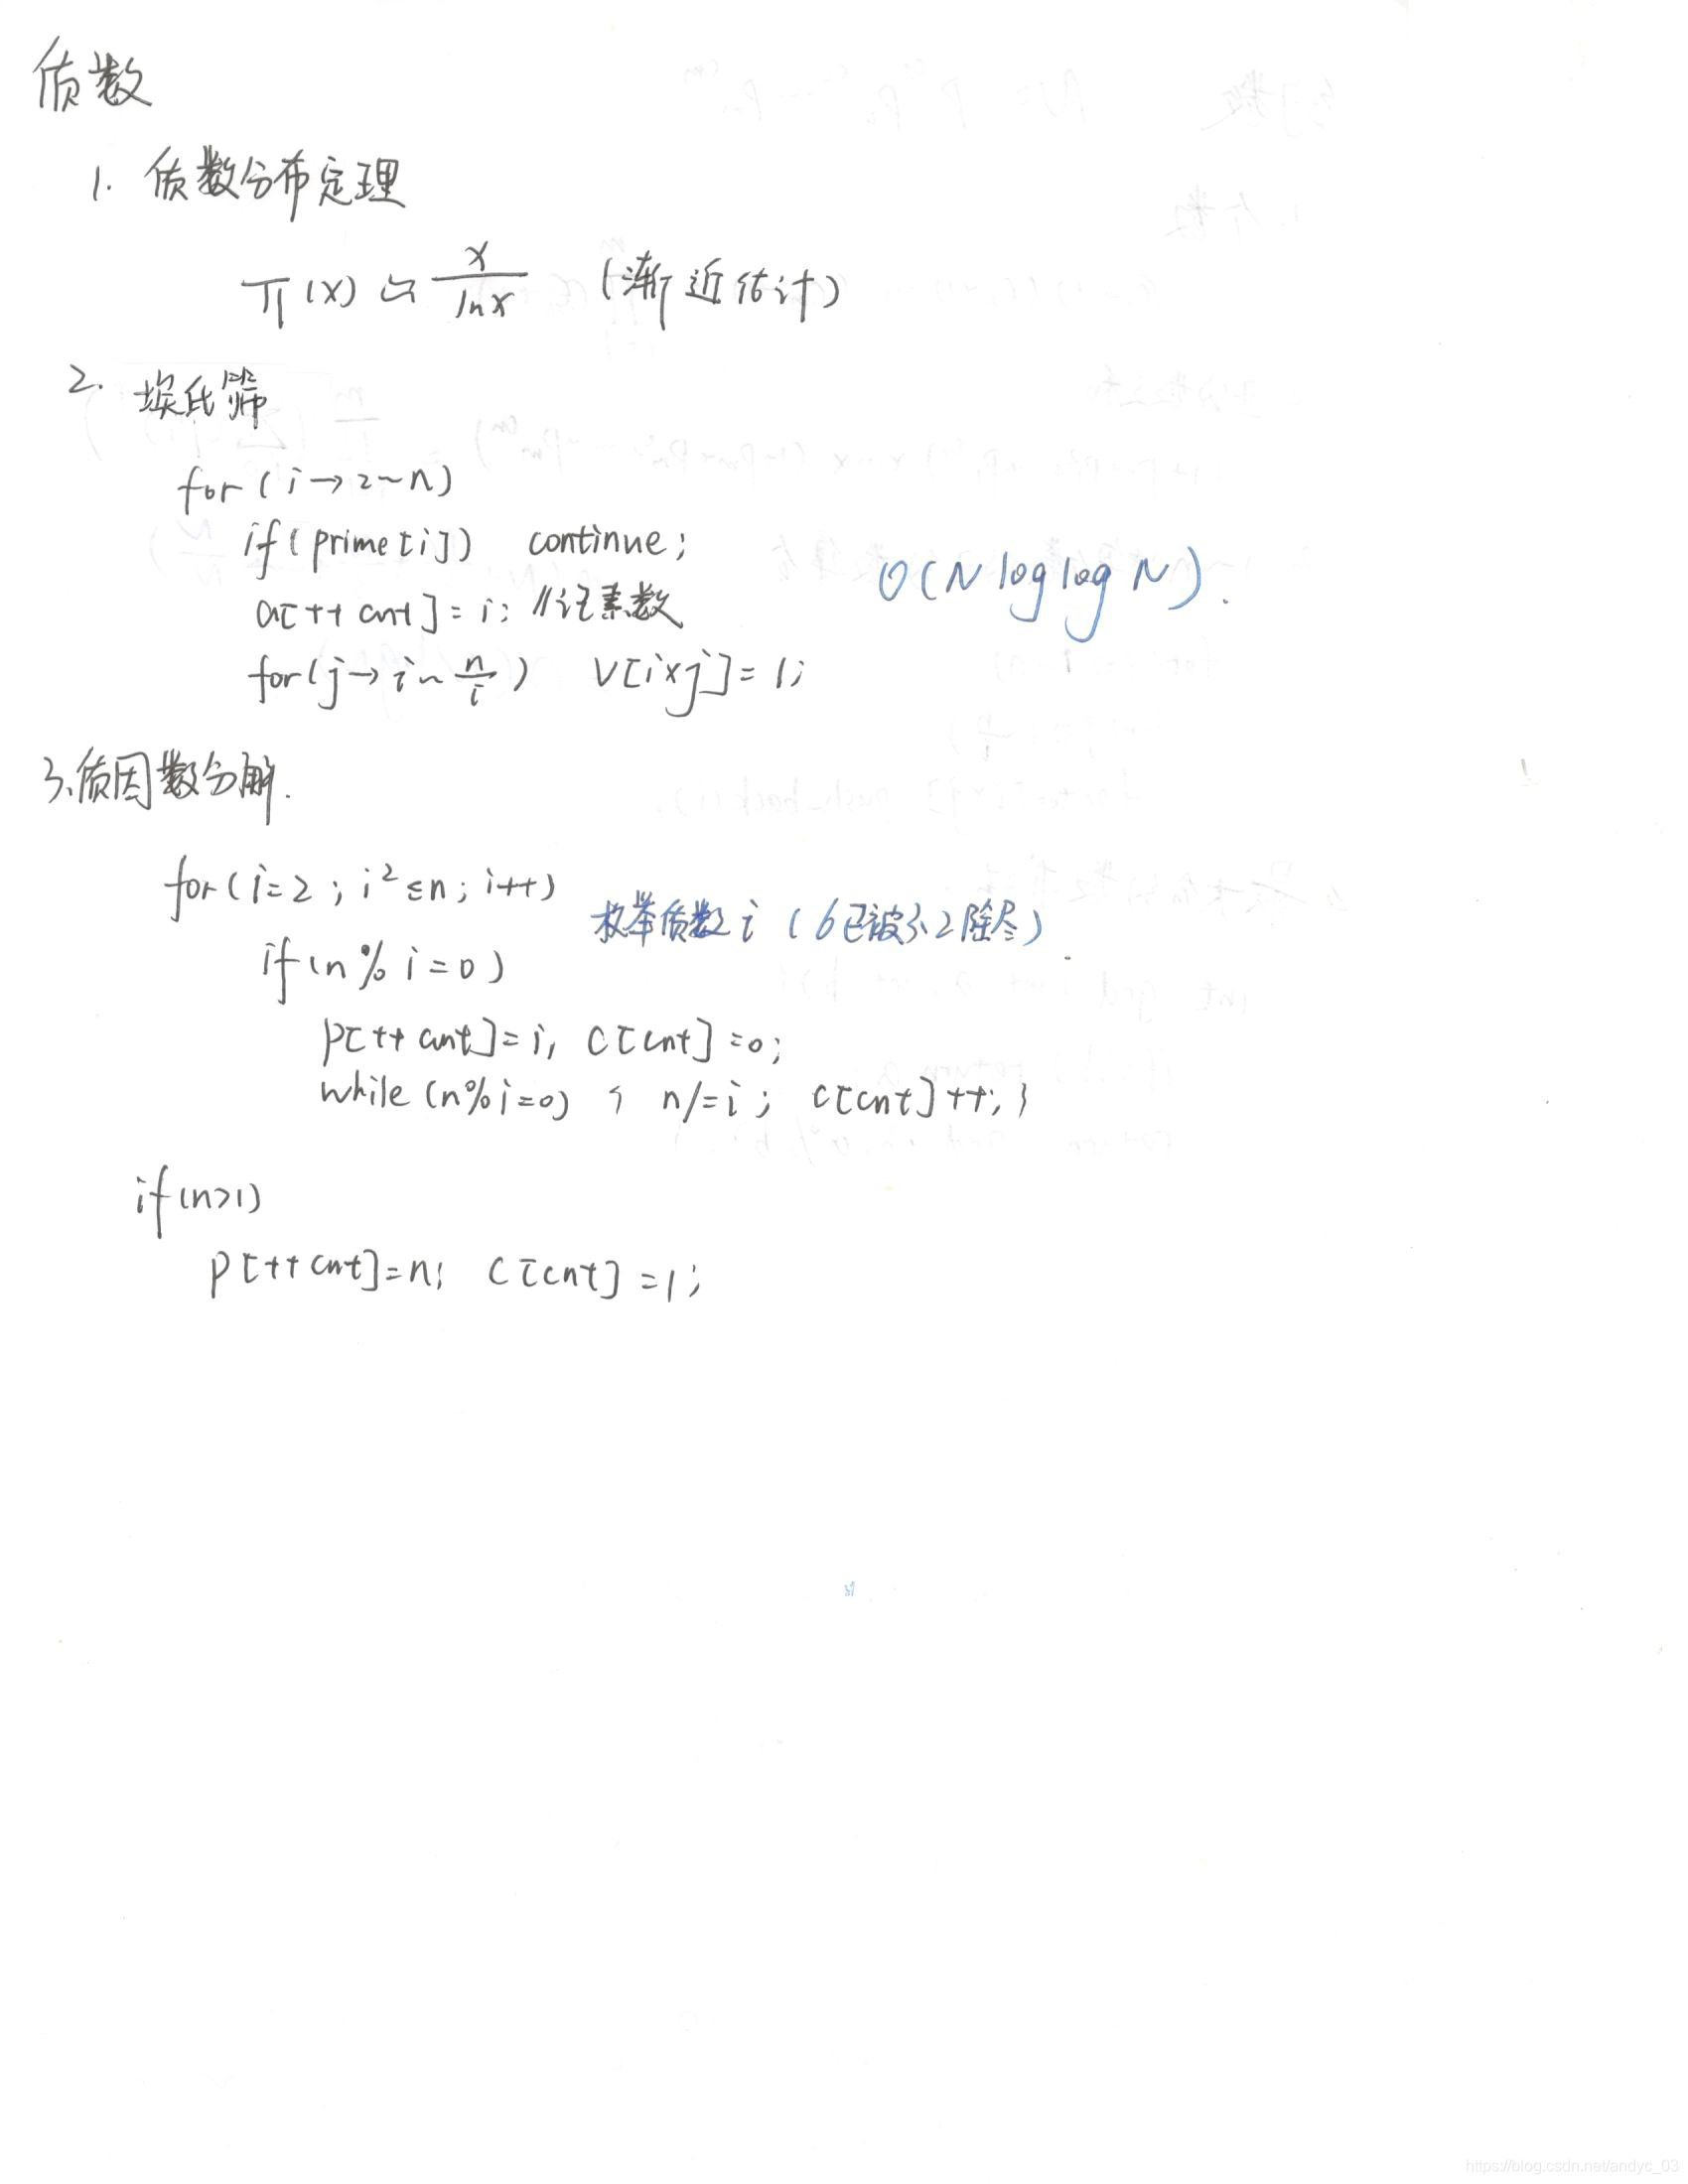 质数
1. 质数分布定理
π(x) ≌ x/lnx (渐近估计)
2. 埃氏筛
for (i→2~n)
if(prime[i]) continue;
a[++cnt]=i; //记素数
O(N log log N).
for(j→i~n/i) V[i×j]=1;
3.质因数分解.
for(i=2; i²≤n; i++)
枚举质数i (6已被3、2除尽).
if(n%i=0)
p[++cnt]=i, c[cnt]=0;
while(n%i=0) { n/=i; c[cnt]++; }
if(n>1)
p[++cnt]=n; c[cnt]=1;
https://blog.csdn.net/andyc_03